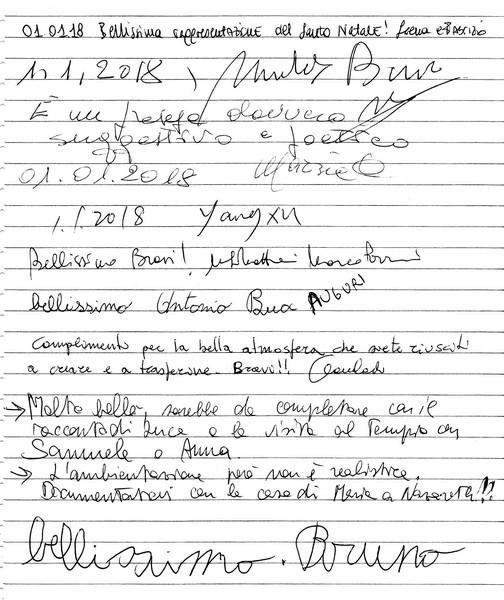 01.01.18 Bellissima rappresentazione del Santo Natale!
1.1, 2018
È un presepe davvero
suggestivo e poetico
01.01.2018
1.1.2018 Yang xu
Bellissimo Bravi!
bellissimo Antonio Bux AUGURI
Complimenti per la bella atmosfera che siete riusciti
a creare e a trasferirne. Bravi!!
→ Molto bello, sarebbe da completare con il
racconto di Luca e la visita al Tempio con
Samuele e Anna.
→ L'ambientazione però non è realistica.
Documentatevi con la casa di Maria a Nazareth!!
bellissimo. Bruno